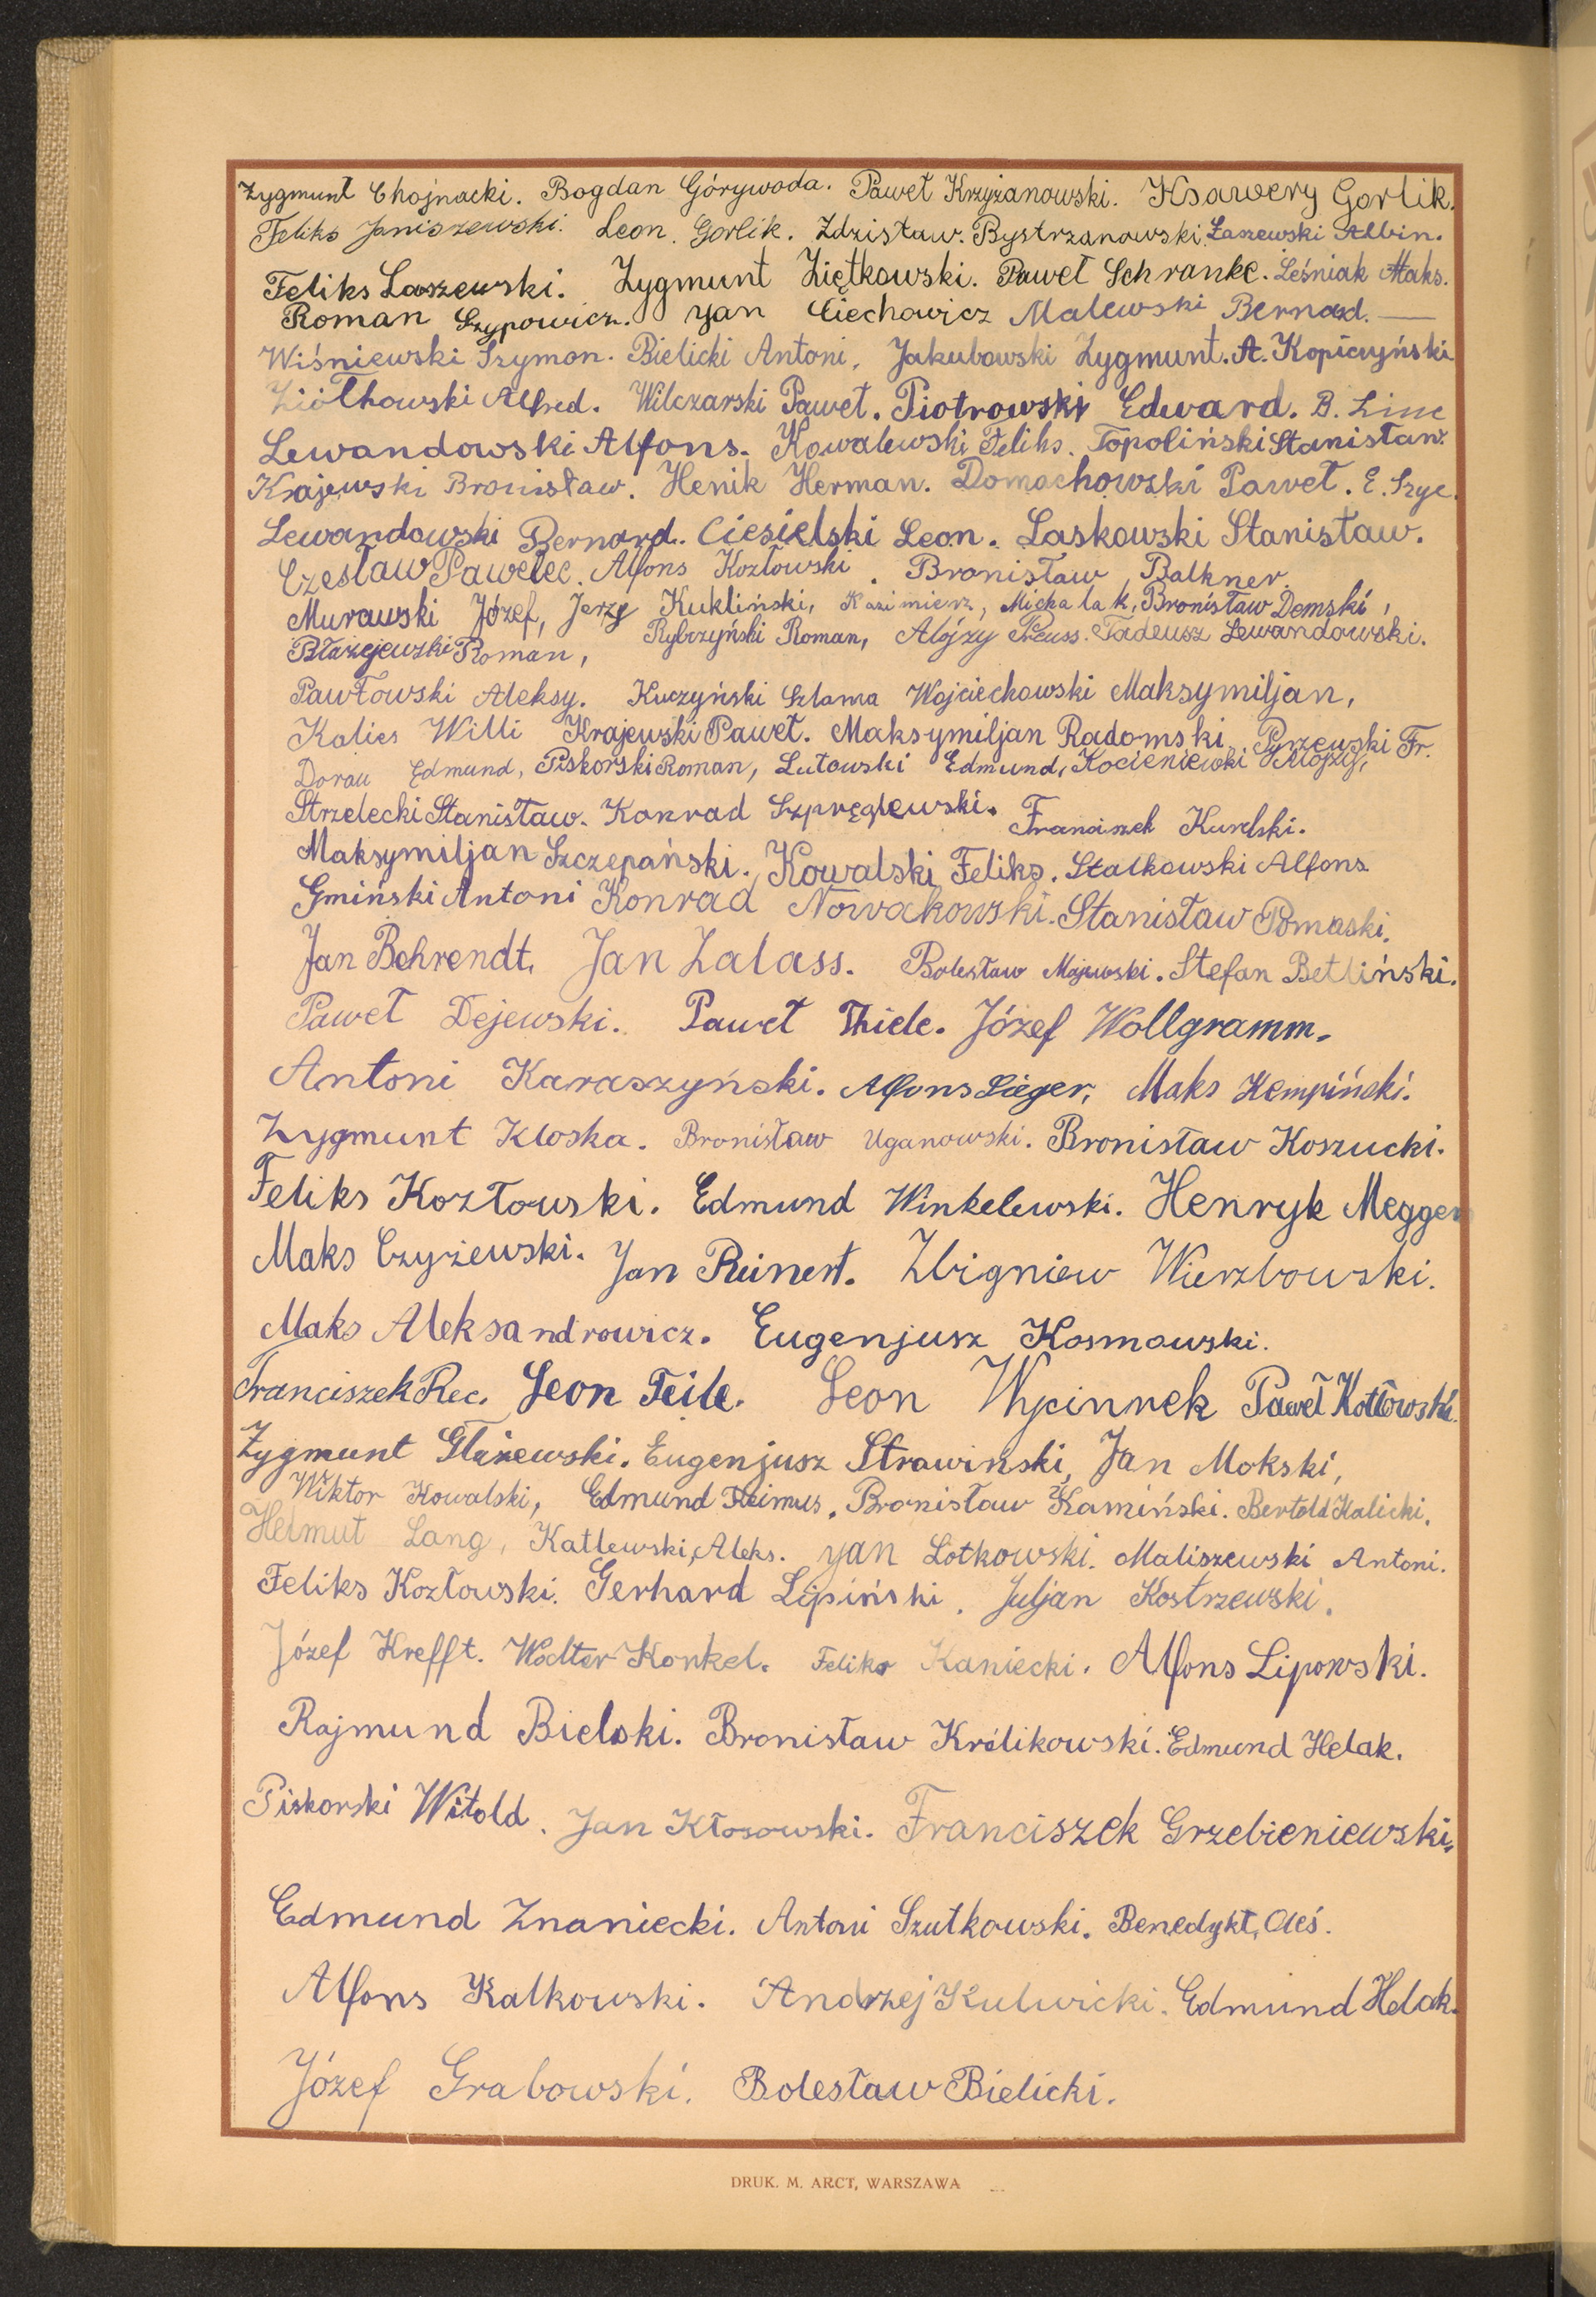 Zygmunt Chojnacki. Bogdan Górywoda. Paweł Krzyżanowski. Ksawery Gorlik.
Feliks Janiszewski. Leon Gorlik. Zdzisław Bystrzanowski Łaszewski Albin.
Feliks Laszewski. Zygmunt Ziętkowski. Paweł Schranke. Leśniak Maks.
Roman Szypowicz. Jan Ciechowicz Malewski Bernard.
Wiśniewski Szymon. Bielicki Antoni, Jakubowski Zygmunt. A. Kopiczyński
Ziółkowski Alfred. Wilczarski Paweł. Piotrowski Edward. B.
Lewandowski Alfons. Kowalewski Feliks. Topoliński Stanisław.
Krajewski Bronisław. Henik Herman. Domachowski Paweł. E. Szyc.
Lewandowski Bernard. Ciesielski Leon. Laskowski Stanisław.
Czesław Pawelec. Alfons Kozłowski. Bronisław, Balkner.
Murawski Józef, Jerzy Kukliński, Kazimierz, Michalak, Bronisław Demski,
Błażejewski Roman, Rybczyński Roman, Alojzy Preuss. Tadeusz Lewandowski.
Pawłowski Aleksy. Kuczyński Szlama Wojciechowski Maksymiljan,
Kalies Willi Krajewski Paweł. Maksymiljan Radomski, Pyrzewski Fr.
Dorau Edmund, Piskorski Roman, Lutowski Edmund, Kocieniewski Alojzy,
Strzelecki Stanisław. Konrad Szpręglewski. Franciszek Kurelski.
Maksymiljan Szczepański. Kowalski Feliks. Stalkowski Alfons
Gmiński Antoni Konrad Nowakowski. Stanisław Pomaski.
Jan Behrendt, Jan Zalass. Bolesław Majewski. Stefan Betliński.
Paweł Dejewski. Paweł Thiele. Józef Wollgramm.
Antoni Karaszyński. Alfons Sieger, Maks Kempiński.
Zygmunt Kloska. Bronisław Uganowski. Bronisław Koszucki.
Feliks Kozłowski. Edmund Winkelewski. Henryk Megger
Maks Czyżewski. Jan Reinert. Zbigniew Wierzbowski.
Maks Aleksandrowicz. Eugenjusz Kosmowski.
Franciszek Rec. Leon Teile. Leon Wycinnek Paweł Kotłowski.
Zygmunt Głażewski. Eugenjusz Strawiński, Jan Mokski,
Wiktor Kowalski, Edmund Reimus. Bronisław Kamiński. Bertold Kalicki.
Helmut Lang, Katlewski, Aleks. Jan Lotkowski. Maliszewski Antoni.
Feliks Kozłowski. Gerhard Lipiński. Juljan Kostrzewski.
Józef Krefft. Walter Konkel. Feliks Kaniecki. Alfons Lipowski.
Rajmund Bielski. Bronisław Królikowski. Edmund Helak.
Piskorski Witold. Jan Kłosowski. Franciszek Grzebieniewski.
Edmund Znaniecki. Antoni Szutkowski. Benedykt, Oleś.
Alfons Kalkowski. Andrzej Kulwicki. Edmund Helak.
Józef Grabowski. Bolesław Bielicki.
DRUK. M. ARCT, WARSZAWA